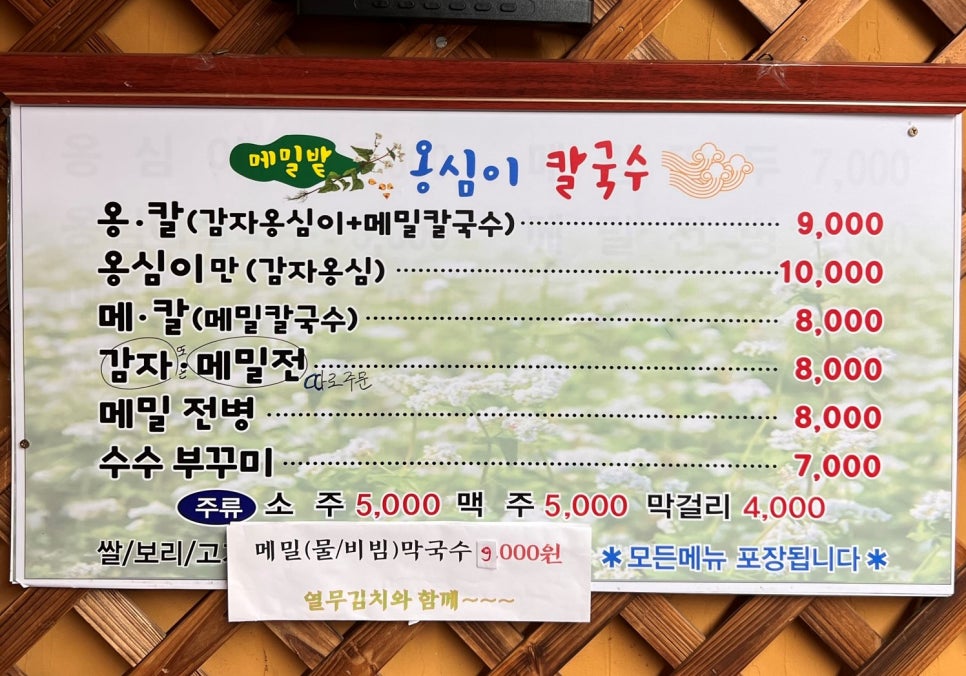 메밀밭 옹심이 칼국수
옹·칼(감자옹심이+메밀칼국수) 9,000
옹심이만(감자옹심) 10,000
메·칼(메밀칼국수) 8,000
감자 또는 메밀전 따로주문 8,000
메밀 전병 8,000
수수 부꾸미 7,000
주류 소 주 5,000 맥 주 5,000 막걸리 4,000
쌀/보리/고 *모든메뉴 포장됩니다*
메밀(물/비빔)막국수 9,000원
열무김치와 함께~~~